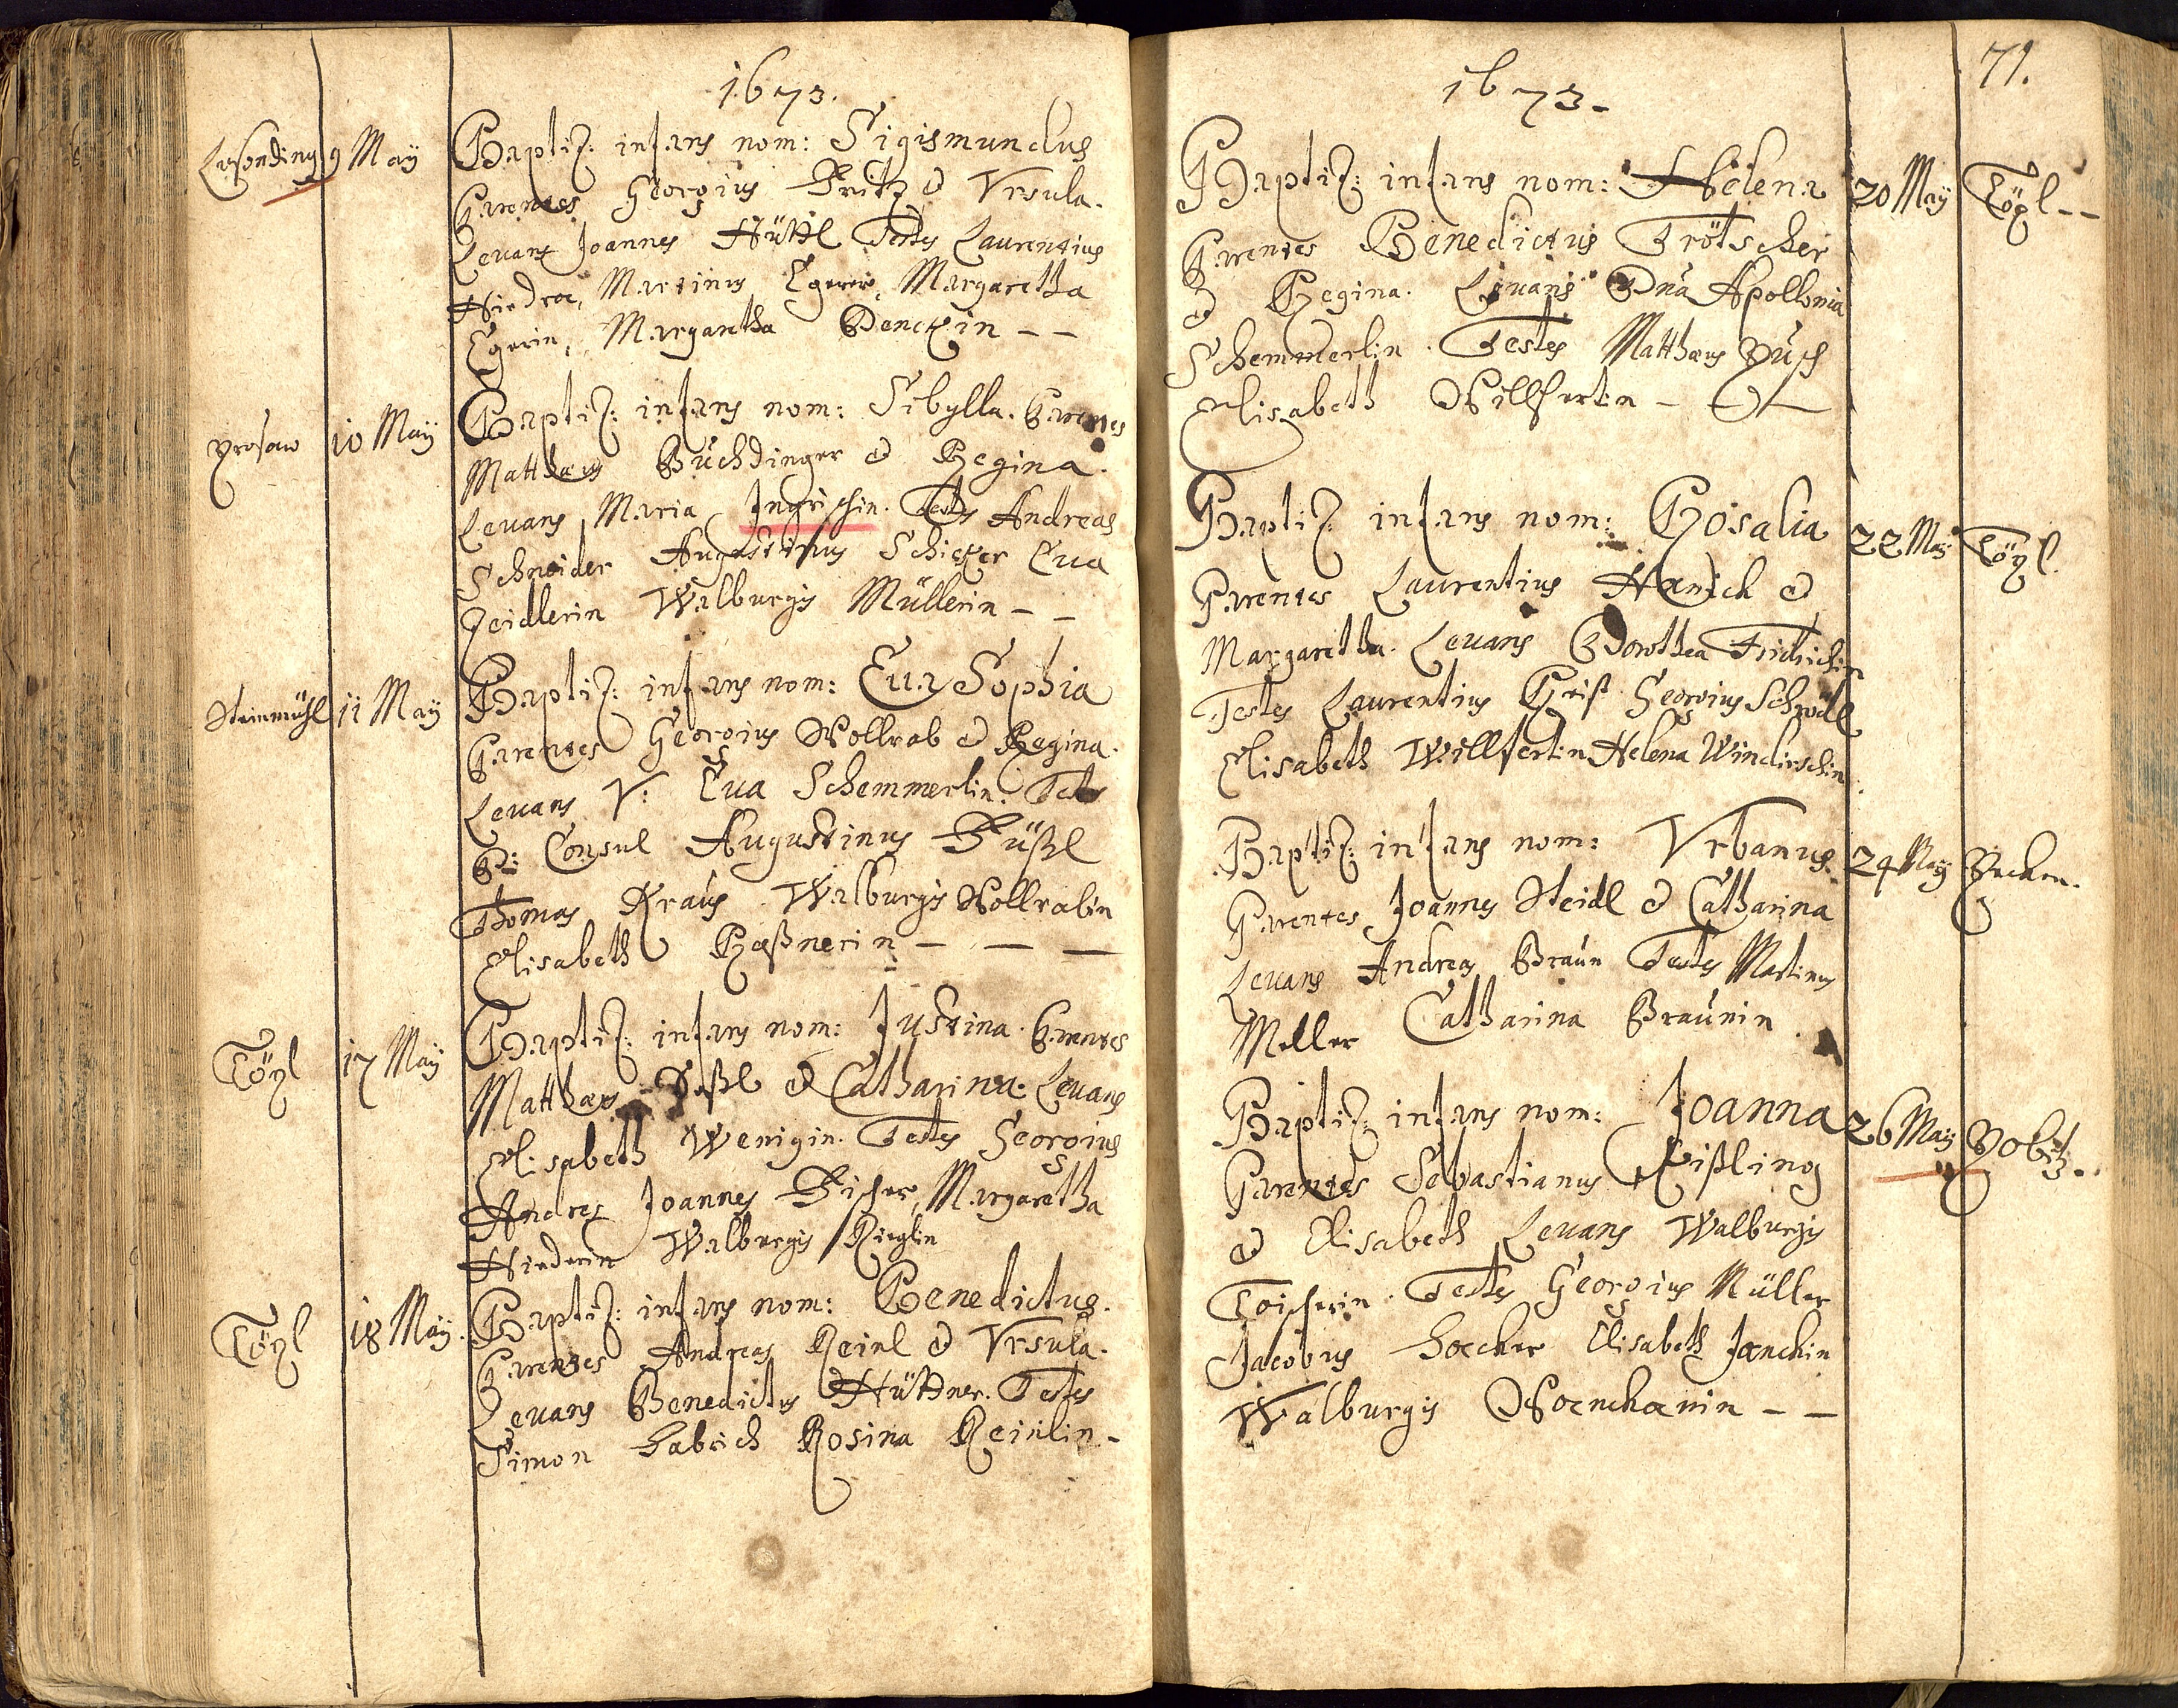 1673.
9 May Baptiz: infans nom: Sigismundus
Parentes Georgius Fritz & Vrsula.
Levans Joannes Hüttl Testes Laurentius
Martinus Egerer, Margaretha
Egerin, Margaretha Denckin - -
Prosau 10 May Baptiz: infans nom: Sibylla. Parentes
Matthæus Buchdinger & Regina.
Levans Maria Ingrischin. Testes Andreas
Schneider Augustinus Schicker Eua
Zeidlerin Walburgis Müllerin - -
Steinmühl 11 May Baptiz: infans nom: Eua Sophia
Parentes Georgius Wollrab & Regina.
Levans V: Eua Schemmerlin. Testes
D: Consul Augustinus Füßl
Thomas Kraus Walburgis Wollrabin
Elisabeth - - -
Töpl 17 May Baptiz: infans nom: Justina. Parentes
Matthæus & Catharina. Levans
Elisabeth Wenigin. Testes Georgius
Andres Joannes Fischer, Margaretha
Walburgis
Töpl 18 May. Baptiz: infans nom: Benedictus.
Parentes Andreas Reinl & Vrsula.
Levans Benedictus Hüttner. Testes
Simon Habrich Rosina Reinlin -
71.
1673.
Baptiz: infans nom: Helena 20 May Töpl - -
Parentes Benedictus Trötscher
& Regina. Levans Dna Apollonia
Schemmerlin. Testes Matthæus
Elisabeth Willfertin -
Baptiz: infans nom: Rosalia 22 May Töpl.
Parentes Laurentius Hanich &
Margaretha. Levans Dorothea Fridrichin
Testes Laurentius Georgius Schrödl
Elisabeth Willfertin Helena Windirschin
Baptiz: infans nom: Vrbanus. 24 May
Parentes Joannes Steidl & Catharina
Levans Andreas Braun Testes Martinus
Meller Catharina Braunin.
Baptiz: infans nom: Joanna 26 May
Parentes Sebastianus Eißling
& Elisabeth Levans Walburgis
Toischerin. Testes Georgius Müller
Jacobus Elisabeth Janchin
Walburgis - -